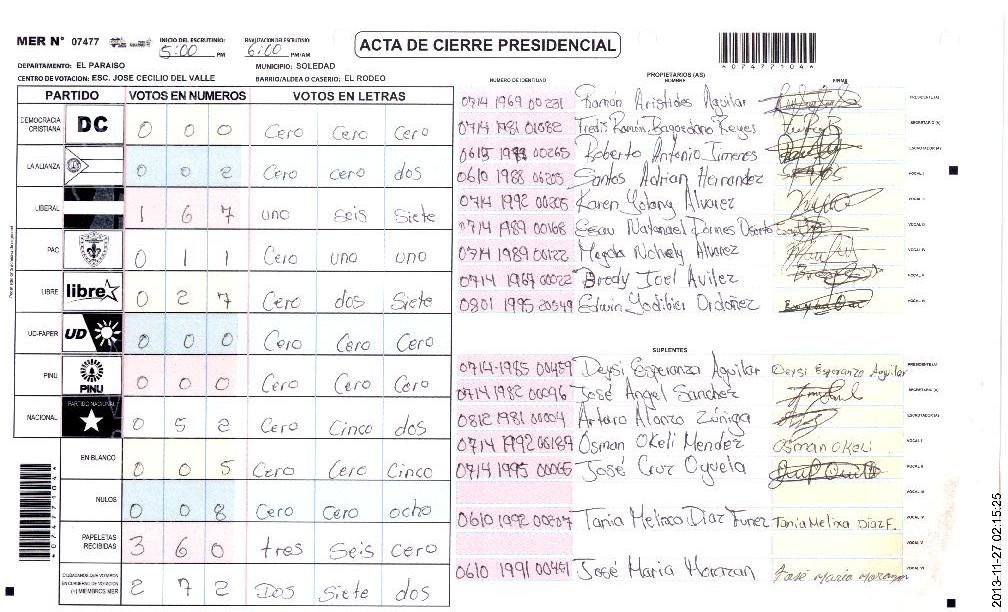 MER N° 07477 INICIO DEL ESCRUTINIO: 5:00 PM FINALIZACION DEL ESCRUTINIO: 6:00 PM/AM
ACTA DE CIERRE PRESIDENCIAL
4074771044
DEPARTAMENTO: EL PARAISO MUNICIPIO: SOLEDAD
CENTRO DE VOTACION: ESC. JOSE CECILIO DEL VALLE BARRIO/ALDEA O CASERIO: EL RODEO
PARTIDO VOTOS EN NUMEROS VOTOS EN LETRAS
DEMOCRACIA CRISTIANA DC 0 0 0 Cero Cero Cero
LA ALIANZA 0 0 2 Cero cero dos
LIBERAL 1 6 7 uno seis Siete
PAC 0 1 1 Cero uno uno
LIBRE libre 0 2 7 Cero dos Siete
UD-FAPER UD 0 0 0 Cero Cero Cero
PINU PINU 0 0 0 Cero Cero Cero
NACIONAL PARTIDO NACIONAL 0 5 2 Cero Cinco dos
EN BLANCO 0 0 5 Cero Cero Cinco
NULOS 0 0 8 Cero Cero ocho
PAPELETAS RECIBIDAS 3 6 0 tres Seis cero
CIUDADANOS QUE VOTARON EN CUADERNO DE VOTACION (+) MIEMBROS MER 2 7 2 Dos Siete dos
4074771044
NUMERO DE IDENTIDAD PROPIETARIOS (AS) NOMBRE FIRMA
0714 1969 00231 Ramón Aristides Aguilar PRESIDENTE (A)
0714 1981 01082 Fredis Ramón Bagoedano Reyes SECRETARIO (A)
0615 00265 Roberto Antonio Jimenes ESCRUTADOR (A)
0610 1988 Santos Adrian Hernandez VOCAL I
0714 1992 00205 Karen Yolany Alvarez VOCAL II
0714 1989 00168 Esau Natanael Osorto VOCAL III
0714 1989 00122 Magda Nohely Alvarez VOCAL IV
0714 1967 00022 Brody Joel Avilez VOCAL V
0801 1995 20549 Edwin Ordoñez VOCAL VI
SUPLENTES
0714-1985 00459 Deysi Esperanza Aguilar Deysi Esperanza Aguilar PRESIDENTE (A)
0714 1982 00096 José Angel Sanchez SECRETARIO (A)
0812 1981 00004 Arturo Alonzo Zúniga ESCRUTADOR (A)
0714 1992 00189 Osman Okeli Mendez Osman Okeli VOCAL I
0714 1995 José Cruz Oyuela VOCAL II
VOCAL III
0610 1992 Tania Melixa Diaz Funez Tania Melixa Diaz F. VOCAL IV
VOCAL V
0610 1991 José Maria Morazan José Maria Morazan VOCAL VI
2013-11-27 02:15:25